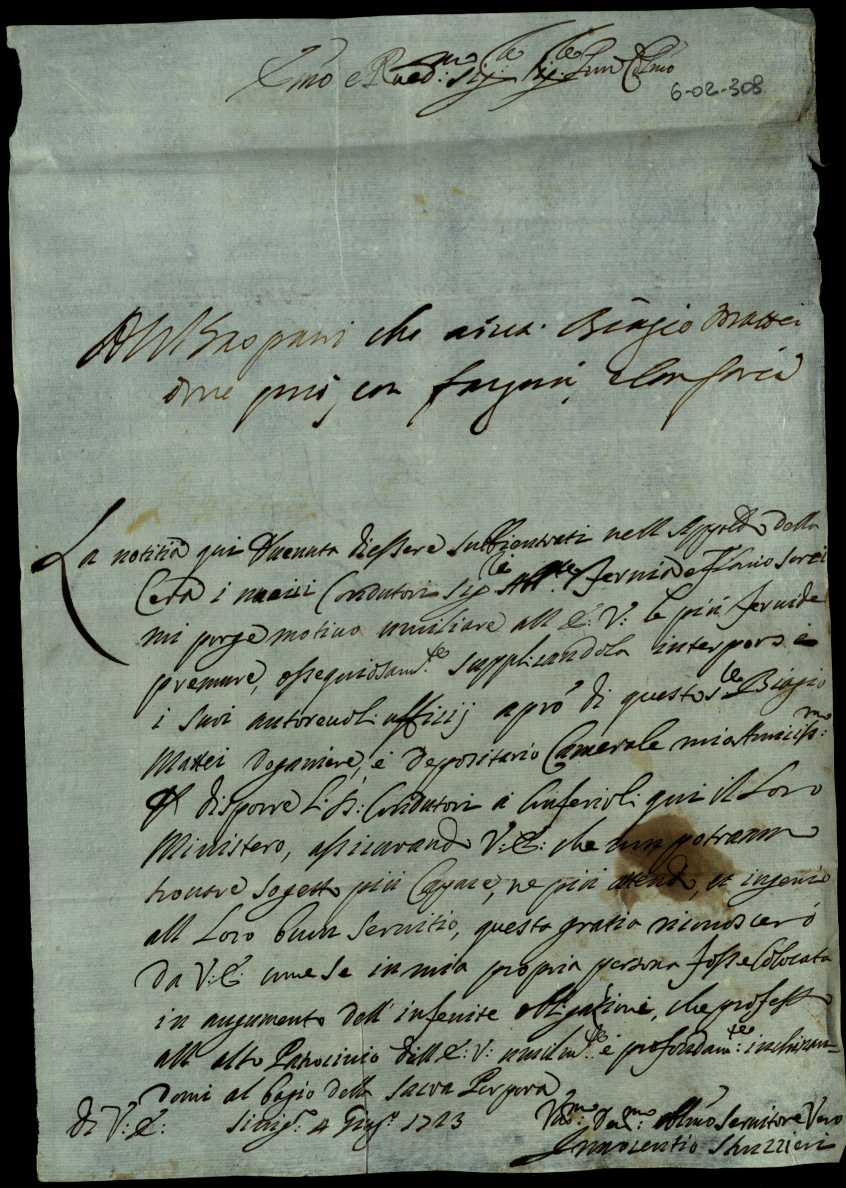 Em̃o e Rued:mo Sig:re Sig:re Prñ Colmo
6-02-308
che Biagio Mattei
più, con
La notitia qui Auenuta di essere subbientrati nell'Appalto della
Cera i nuoui Condutori Sig:re Abb:te Feruia e
mi porge motiuo umiliare all E: V: le più feruide
premure, ossequiosam:te supplicandola interporre
i suoi autoreuoli uffitij a pro' di questo S:re Biagio
Mattei Doganiere, e Depositario Camerale mio Amiciss:mo
disporre li ss: Condutori a Conferirli qui il Loro
Ministero, assicurando V: E: che non potranno
trouare sogetto più Capace, ne più attento, et ingenuo
all Loro buon Seruitio, questa gratia riconoscerò
da V: E: come se in mia propria persona fosse Colocata
in augumento dell' infenite obligazione, che professo
all alto Patrocinio dell E: V: umilm:te e profondam:te inchinan-
domi al bagio della Sacra Porpora
Di V: E: Sinig:a 4 Giug:o 1723 Um:mo Deu:mo Obl̃mo Seruitore Vero
Innocentio Struzzieri